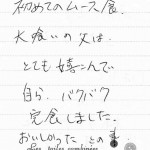 初めてのムース食.
大喰いの父は.
とても嬉こんで
自ら. バクバク
完食しました.
おいしかった との事.